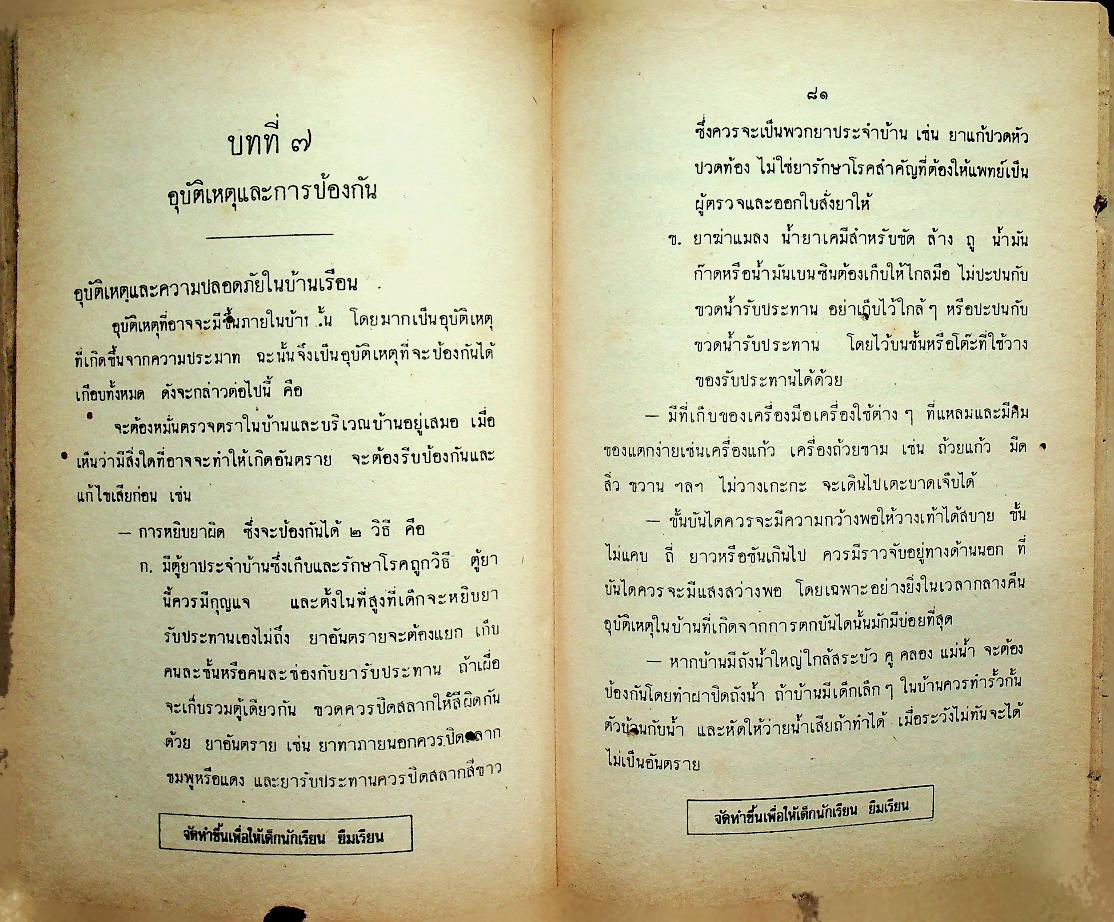 บทที่ ๗
อุบัติเหตุและการป้องกัน
อุบัติเหตุและความปลอดภัยในบ้านเรือน
อุบัติเหตุที่อาจจะมีขึ้นภายในบ้าน นั้น โดยมากเป็นอุบัติเหตุ
ที่เกิดขึ้นจากความประมาท ฉะนั้นจึงเป็นอุบัติเหตุที่จะป้องกันได้
เกือบทั้งหมด ดังจะกล่าวต่อไปนี้ คือ
จะต้องหมั่นตรวจตราในบ้านและบริเวณบ้านอยู่เสมอ เมื่อ
เห็นว่ามีสิ่งใดที่อาจจะทำให้เกิดอันตราย จะต้องรีบป้องกันและ
แก้ไขเสียก่อน เช่น
— การหยิบยาผิด ซึ่งจะป้องกันได้ ๒ วิธี คือ
ก. มีตู้ยาประจำบ้านซึ่งเก็บและรักษาโรคถูกวิธี ตู้ยา
นี้ควรมีกุญแจ และตั้งในที่สูงที่เด็กจะหยิบยา
รับประทานเองไม่ถึง ยาอันตรายจะต้องแยก เก็บ
คนละชั้นหรือคนละช่องกับยารับประทาน ถ้าเผื่อ
จะเก็บรวมตู้เดียวกัน ขวดควรปิดสลากให้สีผิดกัน
ด้วย ยาอันตราย เช่น ยาทาภายนอกควรปิดสลาก
ชมพูหรือแดง และยารับประทานควรปิดสลากสีขาว
จัดทำขึ้นเพื่อให้เด็กนักเรียน ยืมเรียน
๘๑
ซึ่งควรจะเป็นพวกยาประจำบ้าน เช่น ยาแก้ปวดหัว
ปวดท้อง ไม่ใช่ยารักษาโรคสำคัญที่ต้องให้แพทย์เป็น
ผู้ตรวจและออกใบสั่งยาให้
ข. ยาฆ่าแมลง น้ำยาเคมีสำหรับขัด ล้าง ถู น้ำมัน
ก๊าดหรือน้ำมันเบนซินต้องเก็บให้ไกลมือ ไม่ปะปนกับ
ขวดน้ำรับประทาน อย่าเก็บไว้ใกล้ๆ หรือปะปนกับ
ขวดน้ำรับประทาน โดยไว้บนชั้นหรือโต๊ะที่ใช้วาง
ของรับประทานได้ด้วย
— มีที่เก็บของเครื่องมือเครื่องใช้ต่าง ๆ ที่แหลมและมีคม
ของแตกง่ายเช่นเครื่องแก้ว เครื่องถ้วยชาม เช่น ถ้วยแก้ว มีด
สิ่ว ขวาน ฯลฯ ไม่วางเกะกะ จะเดินไปเตะบาดเจ็บได้
— ขั้นบันไดควรจะมีความกว้างพอให้วางเท้าได้สบาย ขั้น
ไม่แคบ ถี่ ยาวหรือชันเกินไป ควรมีราวจับอยู่ทางด้านนอก ที่
บันไดควรจะมีแสงสว่างพอ โดยเฉพาะอย่างยิ่งในเวลากลางคืน
อุบัติเหตุในบ้านที่เกิดจากการตกบันไดนั้นมักมีบ่อยที่สุด
— หากบ้านมีถังน้ำใหญ่ใกล้สระบัว คู คลอง แม่น้ำ จะต้อง
ป้องกันโดยทำฝาปิดถังน้ำ ถ้าบ้านมีเด็กเล็กๆ ในบ้านควรทำรั้วกั้น
ตัวบ้านกับน้ำ และหัดให้ว่ายน้ำเสียถ้าทำได้ เมื่อระวังไม่ทันจะได้
ไม่เป็นอันตราย
จัดทำขึ้นเพื่อให้เด็กนักเรียน ยืมเรียน